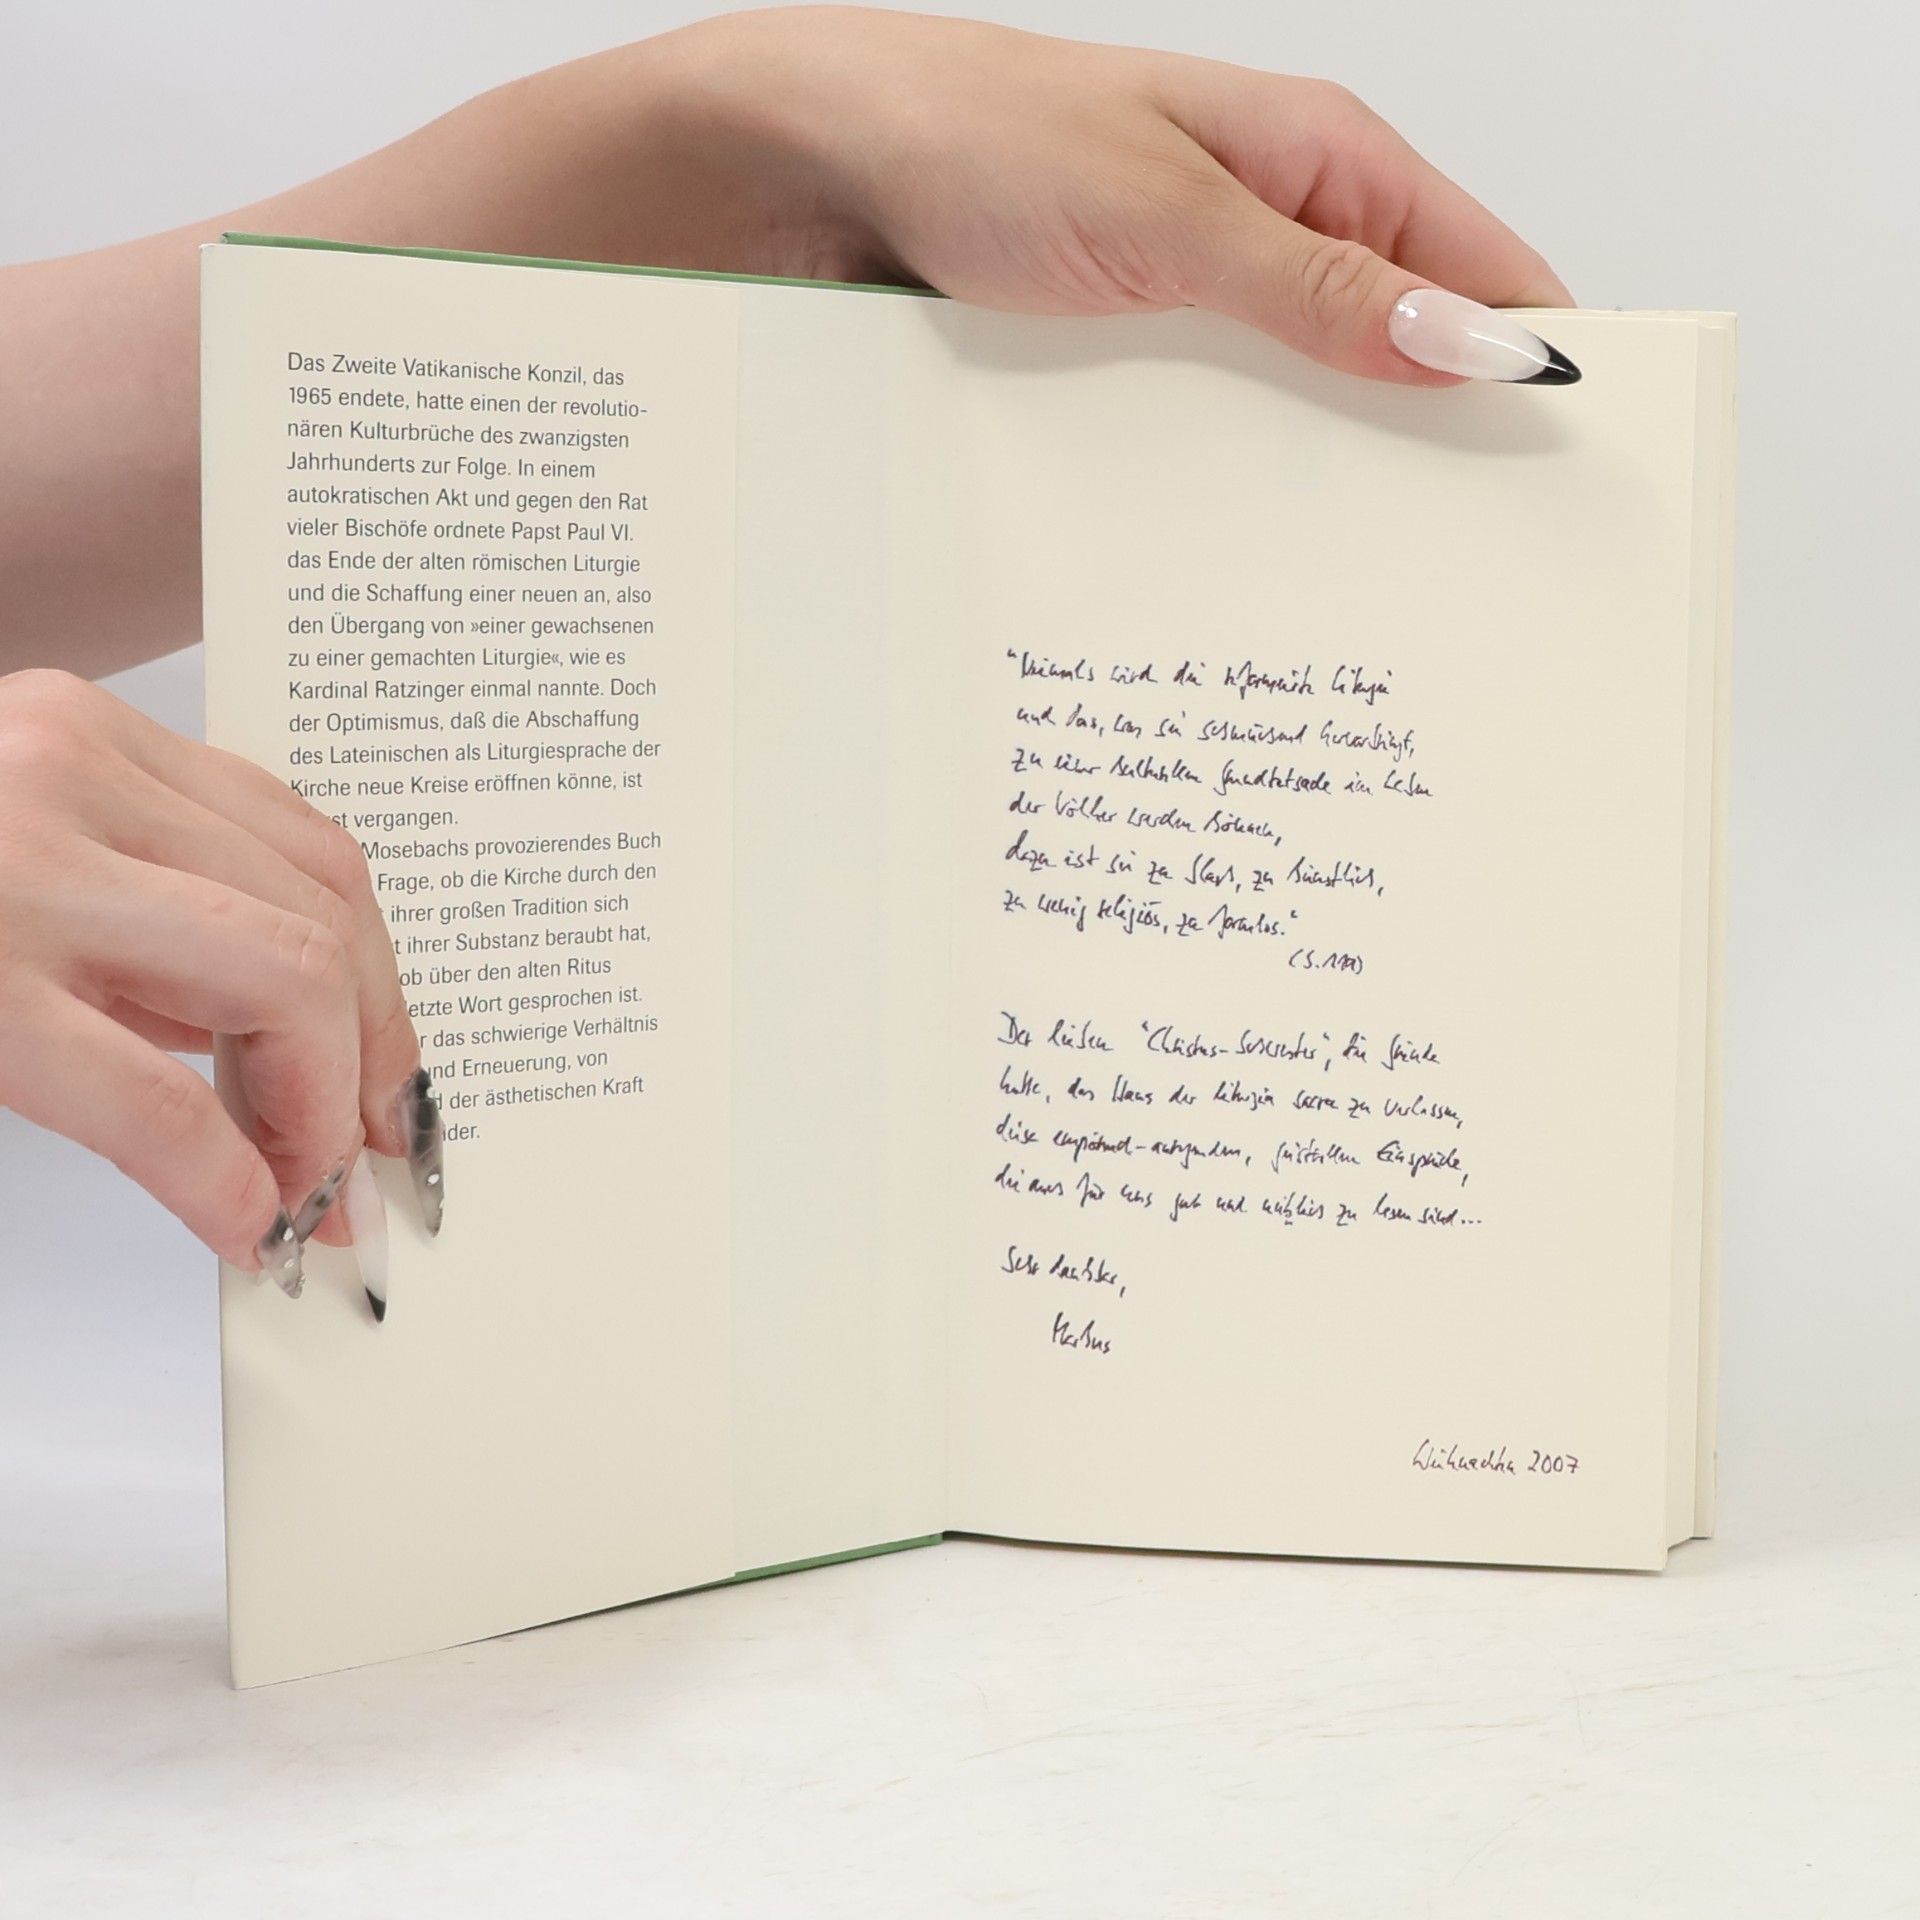 Das Zweite Vatikanische Konzil, das
1965 endete, hatte einen der revolutio-
nären Kulturbrüche des zwanzigsten
Jahrhunderts zur Folge. In einem
autokratischen Akt und gegen den Rat
vieler Bischöfe ordnete Papst Paul VI.
das Ende der alten römischen Liturgie
und die Schaffung einer neuen an, also
den Übergang von »einer gewachsenen
zu einer gemachten Liturgie«, wie es
Kardinal Ratzinger einmal nannte. Doch
der Optimismus, daß die Abschaffung
des Lateinischen als Liturgiesprache der
Kirche neue Kreise eröffnen könne, ist
vergangen.
Mosebachs provozierendes Buch
Frage, ob die Kirche durch den
ihrer großen Tradition sich
ihrer Substanz beraubt hat,
ob über den alten Ritus
letzte Wort gesprochen ist.
das schwierige Verhältnis
und Erneuerung, von
der ästhetischen Kraft
"Niemals wird die reformierte Liturgie
und das, was sie hervorbringt,
zu einer kulturellen Grundtatsache im Leben
der Völker werden können,
dazu ist sie zu flach, zu künstlich,
zu wenig religiös, zu formlos."
Der lieben "Christus-Schwester", die Gründe
hatte, das Haus der Liturgia sacra zu verlassen,
diese empörend-anregenden, geistvollen Einsprüche,
die auch für uns gut und nützlich zu lesen sind...
Sehr dankbar,
Markus
Weihnachten 2007